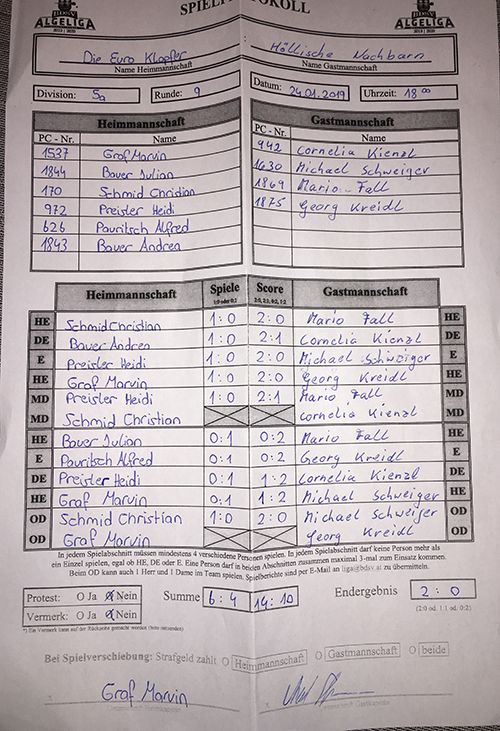 SPIELPROTOKOLL
ALGELIGA ALGELIGA
Die Euro Klopfer Höllische Nachbarn
Name Heimmannschaft Name Gastmannschaft
Division: 5a Runde: 9 Datum: 24.01.2019 Uhrzeit: 18 00
Heimmannschaft Gastmannschaft
PC - Nr. Name PC - Nr. Name
1537 Graf Marvin 942 Cornelia Kienzl
1844 Bauer Julian 1630 Michael Schweiger
170 Schmid Christian 1869 Mario Fall
972 Preisler Heidi 1875 Georg Kreidl
626 Pauritsch Alfred
1843 Bauer Andrea
Heimmannschaft Spiele Score Gastmannschaft
1:0 oder 0:1 2:0, 2:1, 0:2, 1:2
HE Schmid Christian 1:0 2:0 Mario Fall HE
DE Bauer Andrea 1:0 2:1 Cornelia Kienzl DE
E Preisler Heidi 1:0 2:0 Michael Schweiger E
HE Graf Marvin 1:0 2:0 Georg Kreidl HE
MD Preisler Heidi 1:0 2:1 Mario Fall MD
MD Schmid Christian Cornelia Kienzl MD
HE Bauer Julian 0:1 0:2 Mario Fall HE
E Pauritsch Alfred 0:1 0:2 Georg Kreidl E
DE Preisler Heidi 0:1 1:2 Cornelia Kienzl DE
HE Graf Marvin 0:1 1:2 Michael Schweiger HE
OD Schmid Christian 1:0 2:0 Michael Schweiger OD
OD Graf Marvin Georg Kreidl OD
In jedem Spielabschnitt müssen mindestens 4 verschiedene Personen spielen. In jedem Spielabschnitt darf keine Person mehr als
ein Einzel spielen, egal ob HE, DE oder E. Eine Person darf in beiden Abschnitten zusammen maximal 3-mal zum Einsatz kommen.
Beim OD kann auch 1 Herr und 1 Dame im Team spielen. Spielberichte sind per E-Mail an liga@bdsv.at zu übermitteln.
Protest: O Ja O Nein Summe 6:4 14:10 Endergebnis 2:0
Vermerk: O Ja O Nein (2:0 od. 1:1 od. 0:2)
*) Ein Vermerk kann auf der Rückseite gemacht werden
Bei Spielverschiebung: Strafgeld zahlt O Heimmannschaft O Gastmannschaft O beide
Graf Marvin